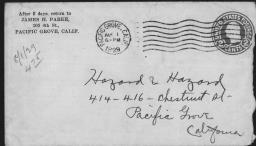 After 5 days return to
JAMES H. PARKE,
305 8th St.,
PACIFIC GROVE, CALIF.
PACIFIC GROVE, CALIF.
1
5-PM
1929
UNITED STATES
Hazard & Hazard
414-416- Chestnut St-
Pacific Grove
California